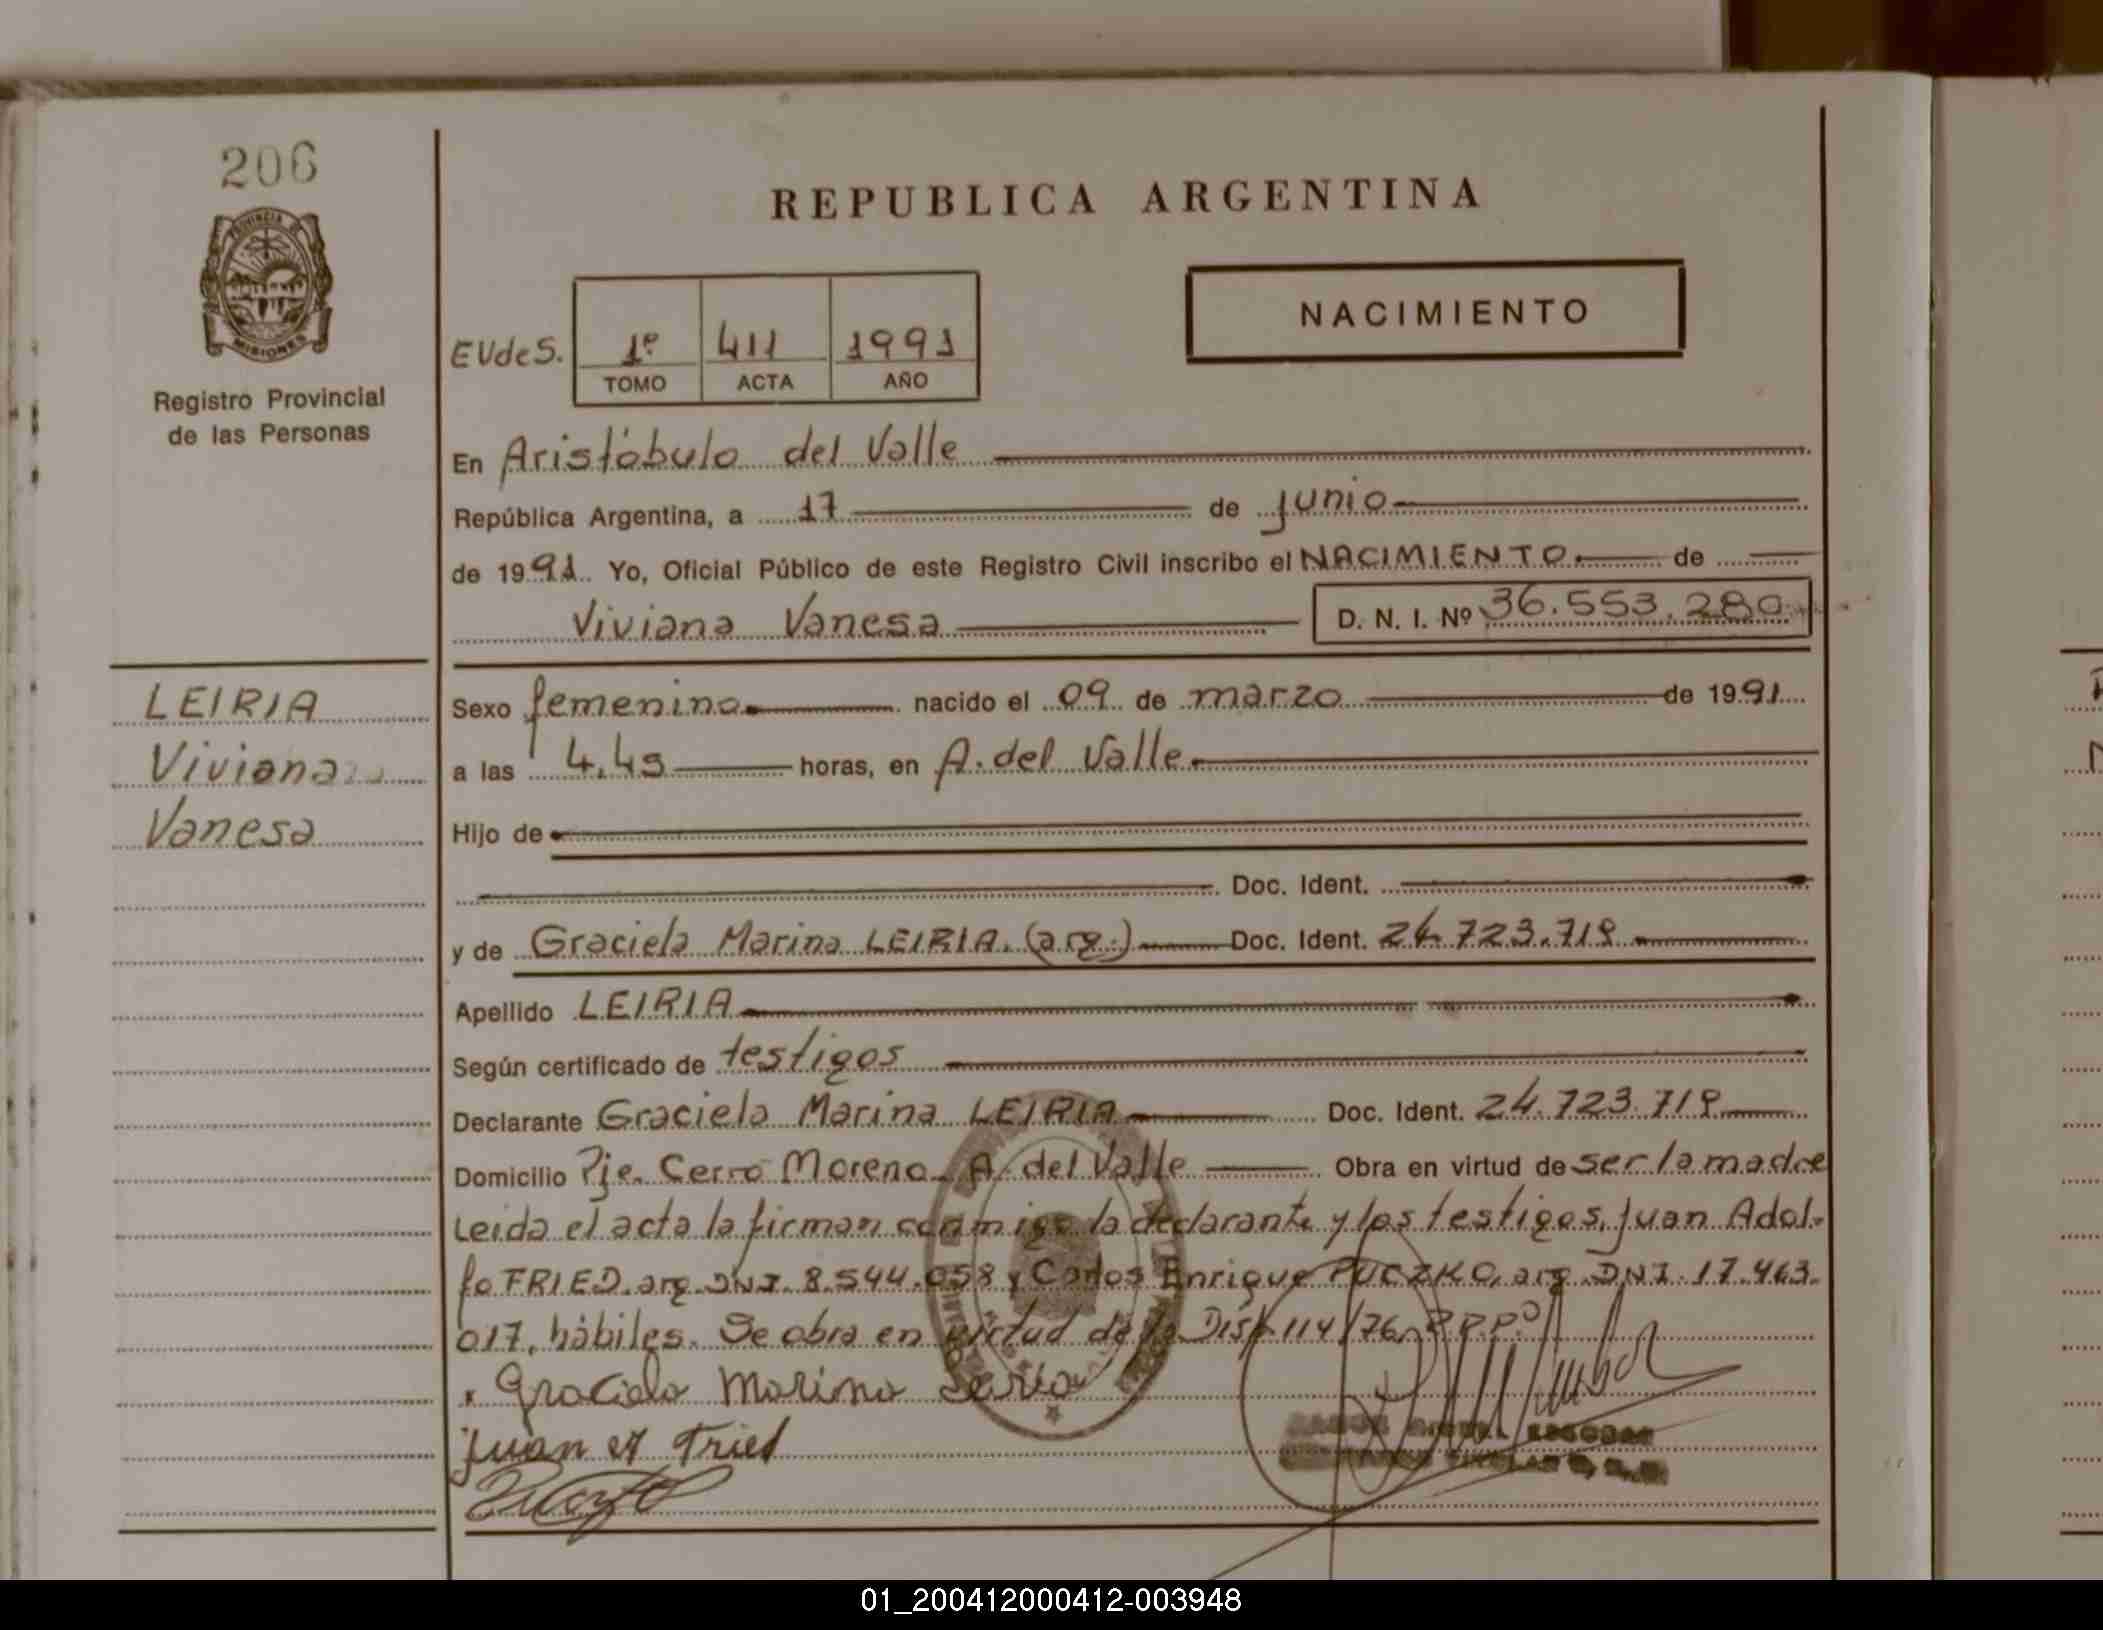 206
PROVINCIA DE
MISIONES
Registro Provincial
de las Personas
REPUBLICA ARGENTINA
NACIMIENTO
EVdeS. 1º 411 1991
TOMO ACTA AÑO
En Aristóbulo del Valle
República Argentina, a 17 de junio
de 1991. Yo, Oficial Público de este Registro Civil inscribo el NACIMIENTO. de
Viviana Vanesa D. N. I. Nº 36.553.280
LEIRIA
Viviana
Vanesa
Sexo femenino nacido el 09 de marzo de 1991
a las 4,45 horas, en A. del Valle
Hijo de
Doc. Ident.
y de Graciela Marina LEIRIA. (arg.) Doc. Ident. 24.723.719
Apellido LEIRIA
Según certificado de testigos
Declarante Graciela Marina LEIRIA Doc. Ident. 24.723.719
Domicilio Pje. Cerro Moreno A. del Valle Obra en virtud de ser la madre
Leida el acta la firman conmigo la declarante y los testigos, Juan Adol-
fo FRIED. arg. DNI. 8.544.058 y Carlos Enrique PUCZKO, arg. DNI. 17.463.
017, hábiles. Se obra en virtud de la Disp. 114/76, R.P.P.
Graciela Marina Leiria
Juan A Fried
01_200412000412-003948